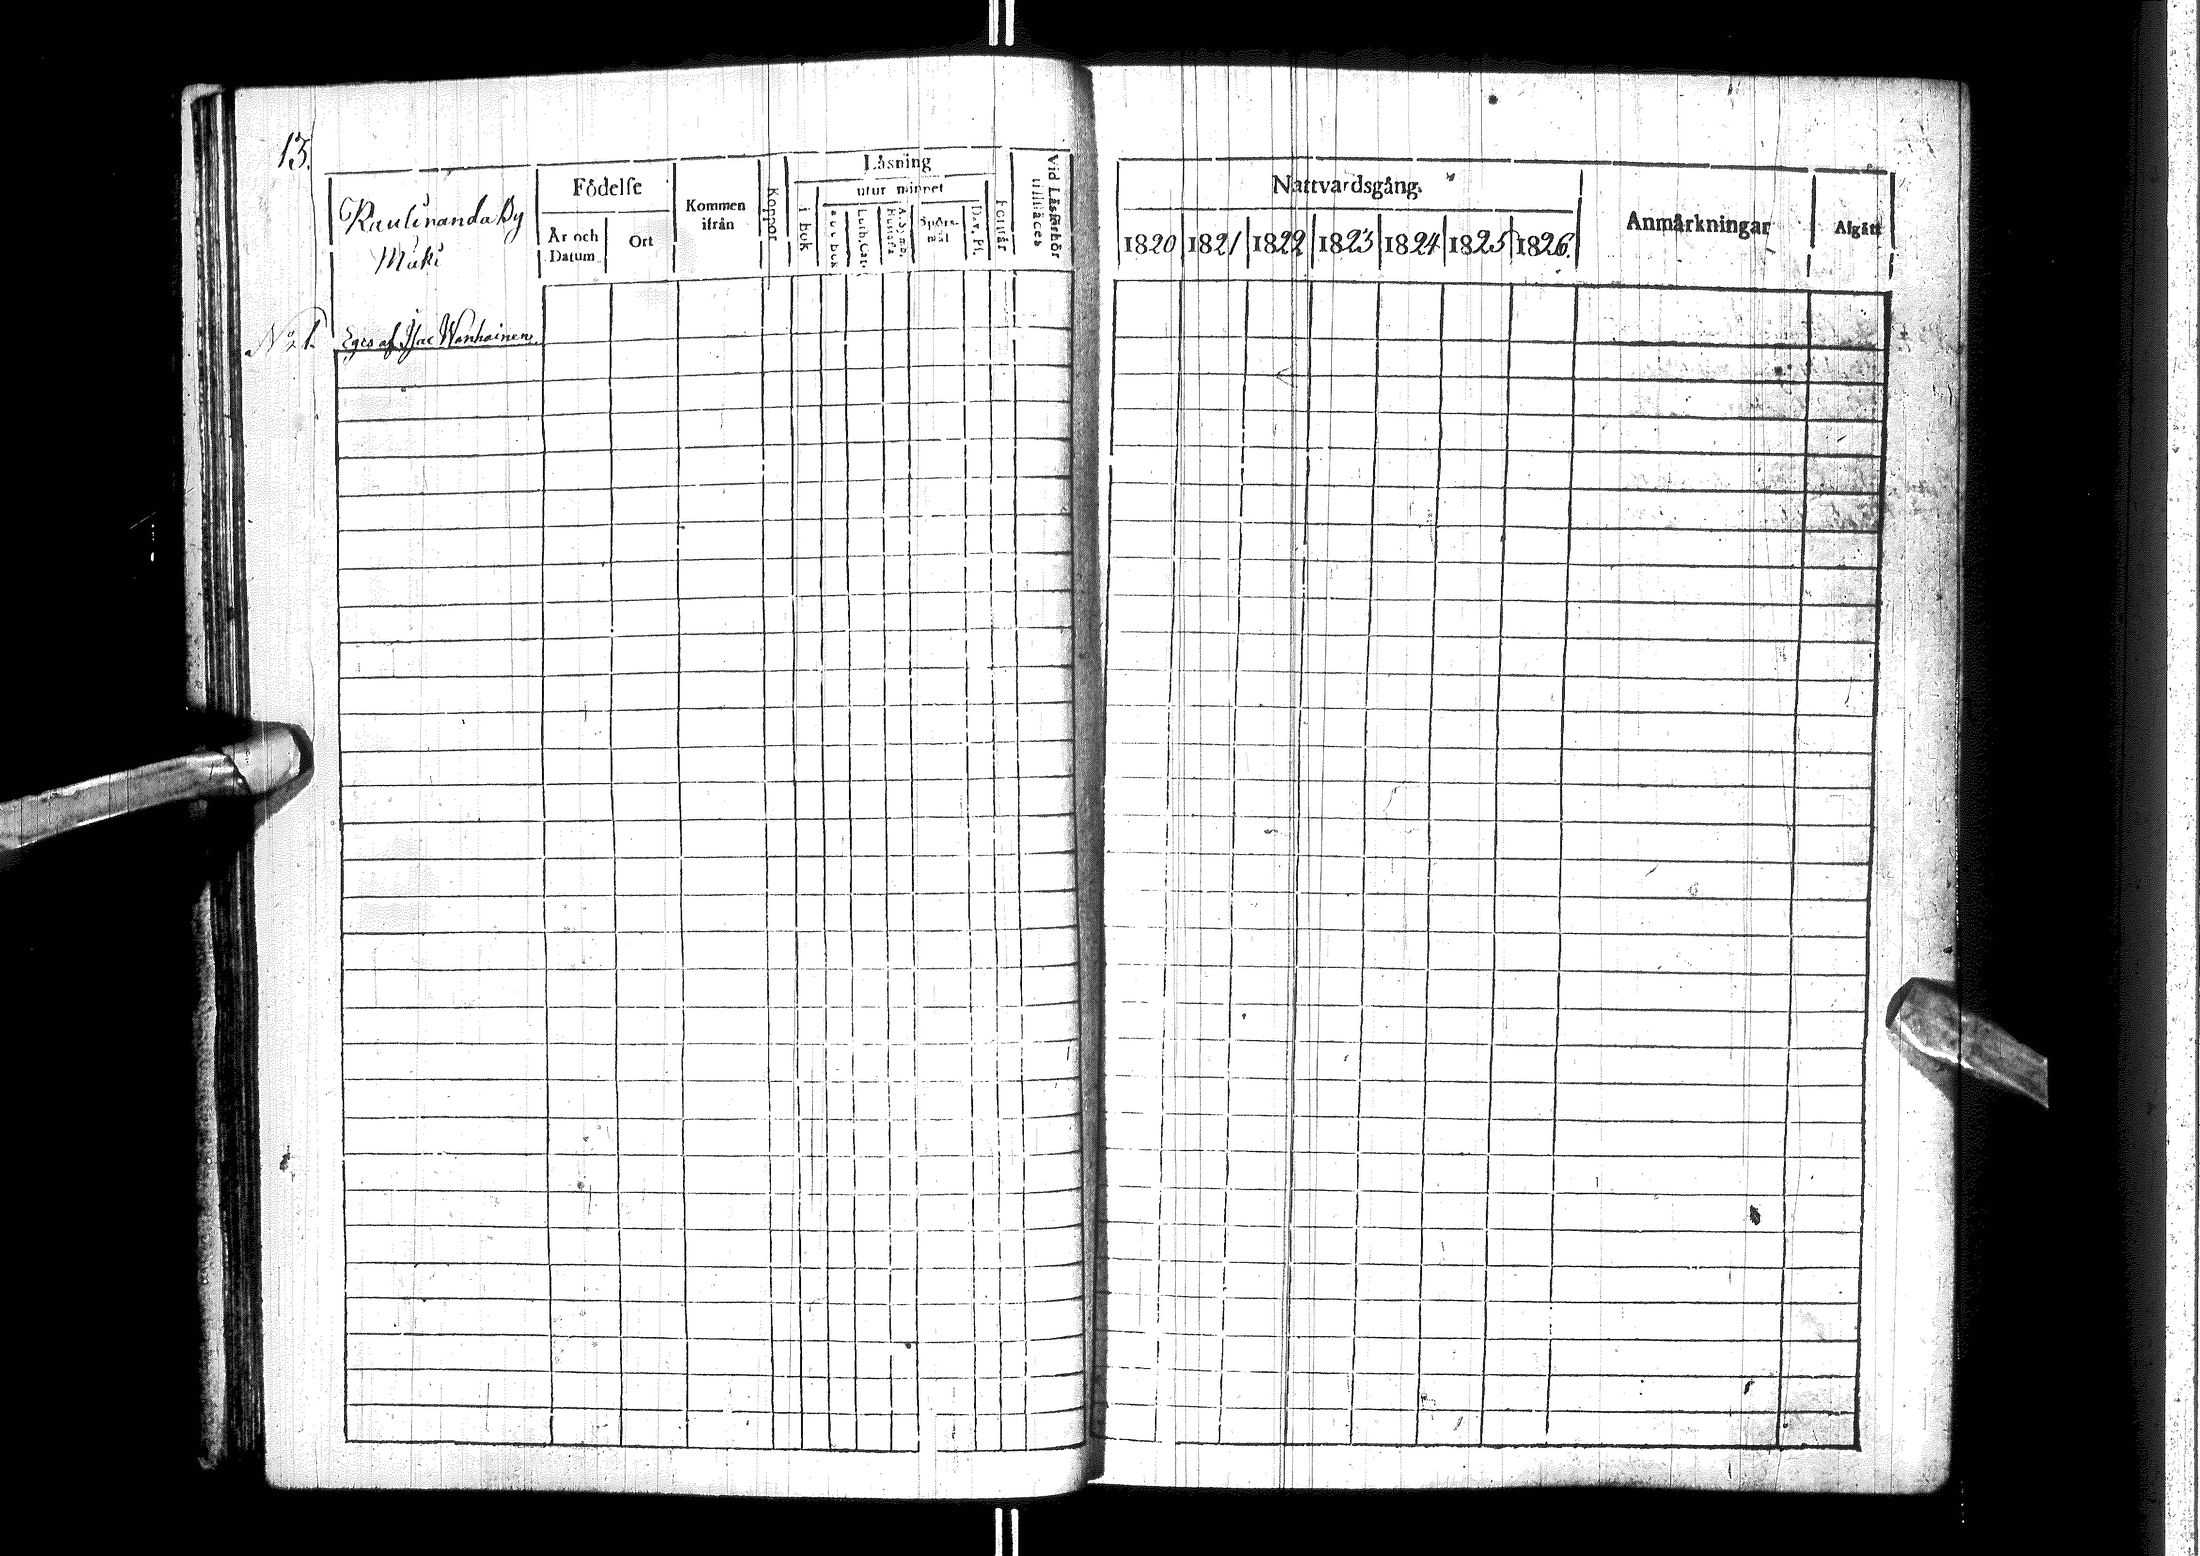 13.
Raulinanda By
Mäki
Födelse
År och Datum
Ort
Kommen ifrån
Koppor
Läsning
i bok
utur minnet
a b c bok
Luth. Cat.
A. Symb.
Hustafla
Spörs-mål
Dav. Ps.
Förstår
Vid Läsförhör
Nattvardsgång.
1820 1821 1822 1823 1824 1825 1826.
Anmärkningar
Afgått
No 1. Eges af Isac Wanhainen.